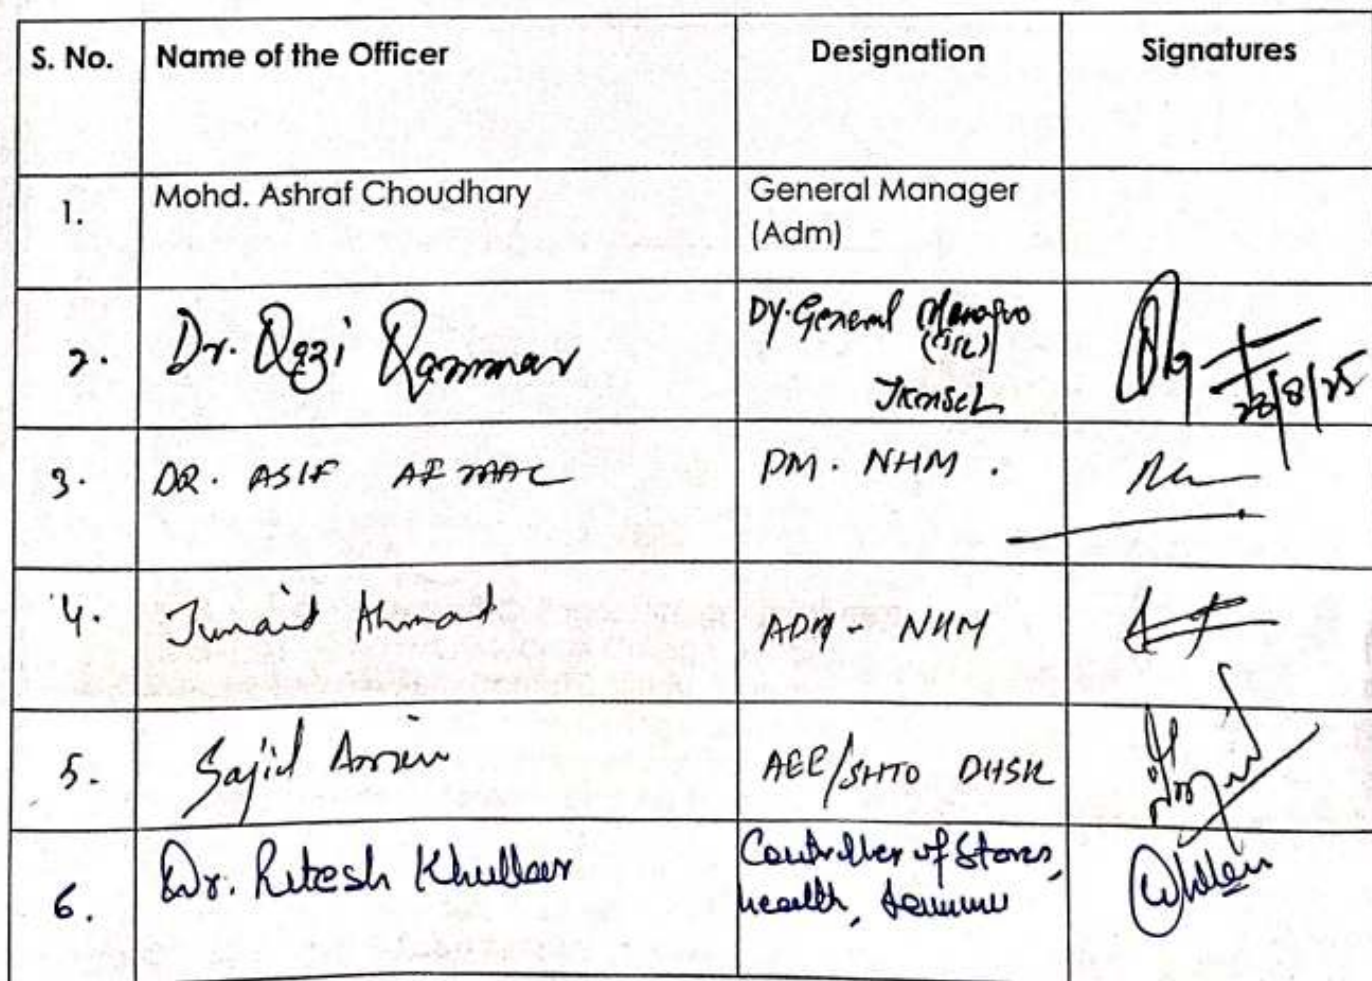 S. No. Name of the Officer Designation Signatures
1. Mohd. Ashraf Choudhary General Manager
(Adm)
2. Dr. Qazi Qammar Dy. General Manager
JKMSCL
28/8/25
3. DR. ASIF DM. NHM.
4. Junaid Ahmad ADM - NHM
5. Sajid Amin AEE/SHTO DHSK
6. Dr. Ritesh Khullar Controller of Stores,
Health, Jammu